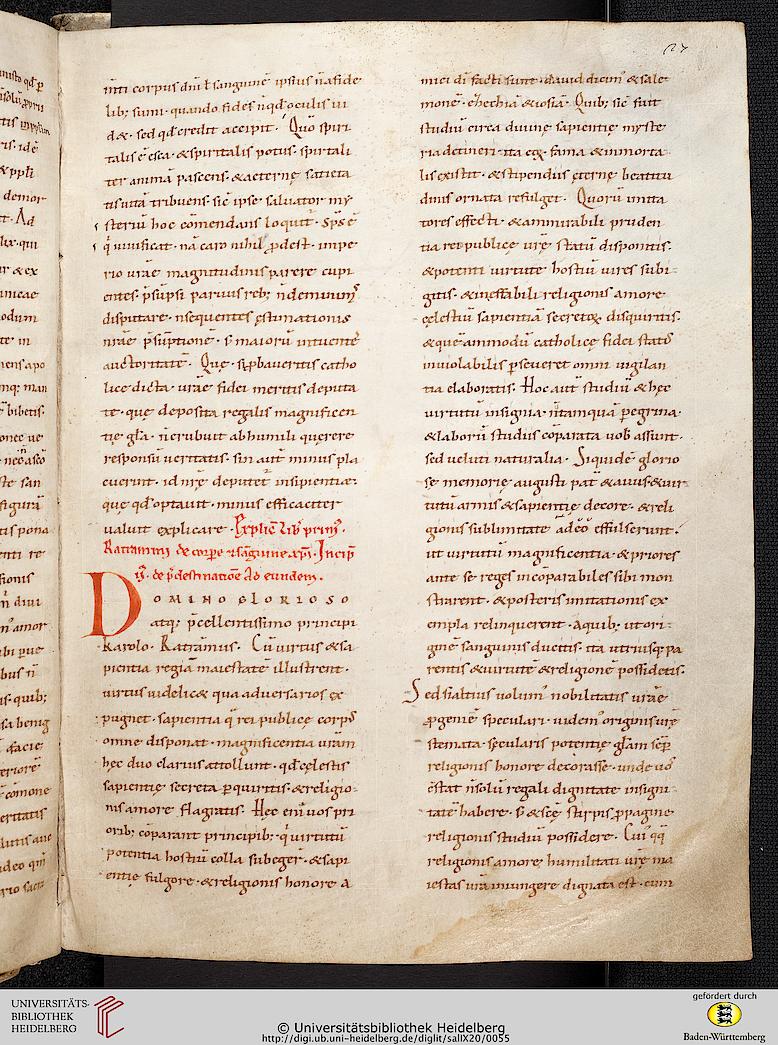 27
inti corpus dñi ł sanguinē ipsius ñ a fide
lib; sumi · quando fides ñ qđ oculis ui
d& · sed qđ credit accipit · Quō spiri
talis ē esca · & spiritalis potus · spirtali
ter animā pascens · & aeternę satieta
tis uitā tribuens · sic ipse saluator my
steriū hoc cōmendans loquit · Sp̄s ē
q̇ uiuificat · nā caro nihil ꝓdest · impe
rio urae magnitudinis parere cupi
entes · p̄supsi paruus reb; ñ de minimꝰ
disputare · ñ sequentes ęstimationis
nrāe p̄suptionē · s; maiorū intuentē
auctoritatē · Quę si pbaueritis catho
lice dicta · urae fidei meritis deputa
te · que deposita regalis magnificen
tię gła · ñ erubuit ab humili querere
responsū ueritatis · sin aut minus pla
cuerint · id nrę deputet insipientiae ·
quę qđ optauit · minus efficaciter
ualuit explicare · Explič Lib primꝰ ·
Ratramni de corpe & sanguine xpi · Incip
ij · de p̄destinatione Ad eundem ·
DOMINO GLORIOSO
atq; p̄cellentissimo principi
karolo · Ratramus · Cū uirtus & sa
pientia regiā maiestatē illustrent ·
uirtus uidelicet qua aduersarios ex
pugnet · sapientia q̇ rei publicę corpꝰ
omne disponat · magnificentiā urām
hęc duo clarius attollunt · qđ cęlestis
sapientię secreta pquiritis · & religio
nis amore flagratis · Hęc eni uos pri
orib; cōparant principib; q̇ uirtutū
potentia hostiū colla subegeř · & sapi
entię fulgore · & religionis honore a
mici dī facti sunt · dauid dicimꝰ & sale
monē · ezechiā & iosiā · Quib; sic fuit
studiū circa diuinę sapientię myste
ria detineri · ita eoꝝ fama & inmorta
lis existit · & stipendiis ęternę beatitu
dinis ornata refulget · Quorū imita
tores effecti · & ammirabili pruden
tia rei publicę urę statū disponitis ·
& potenti uirtute hostiū uires subi
gitis · & ineffabili religionis amore
cęlestiū sapientiā secretoꝝ disquiritis ·
& que ammodū catholicę fidei statꝰ
inuiolabilis pseueret omni uigilan
tia elaboratis · Hoc aut studiū & hęc
uirtutū insignia · ñ tamquā pegrina
& laborū studiis cōparata uob assunt ·
sed ueluti naturalia · Siquidē glorio
sę memorię augusti pat & auus & uir
tutū armis & sapientię decore · & reli
gionis sublimitate adeo effulserunt ·
ut uirtutū magnificentia & priores
ante se reges incōparabiles sibi mon
strarent · & posteris imitationis ex
empla relinquerent · A quib; ut ori
ginē sanguinis ducitis · ita utriusq; pa
rentis & uirtutē & religionē possidetis ·
Sed si altius uolumꝰ nobilitatis urāe
ꝓgeniē speculari · uidemꝰ originis urę
stemata · sęcularis potentię głam semp
religionis honore decorasse · unde uos
cōstat ñ solū regali dignitate insigni
tatē habere · s; & sce stirpis ꝓpagine
religionis studiū possidere · Cuiꝰ qq̇
religionis amore humilitati urę ma
iestas urā iniungere dignata est · cum
UNIVERSITÄTS-
BIBLIOTHEK
HEIDELBERG
© Universitätsbibliothek Heidelberg
http://digi.ub.uni-heidelberg.de/diglit/salIX20/0055
gefördert durch
Baden-Württemberg